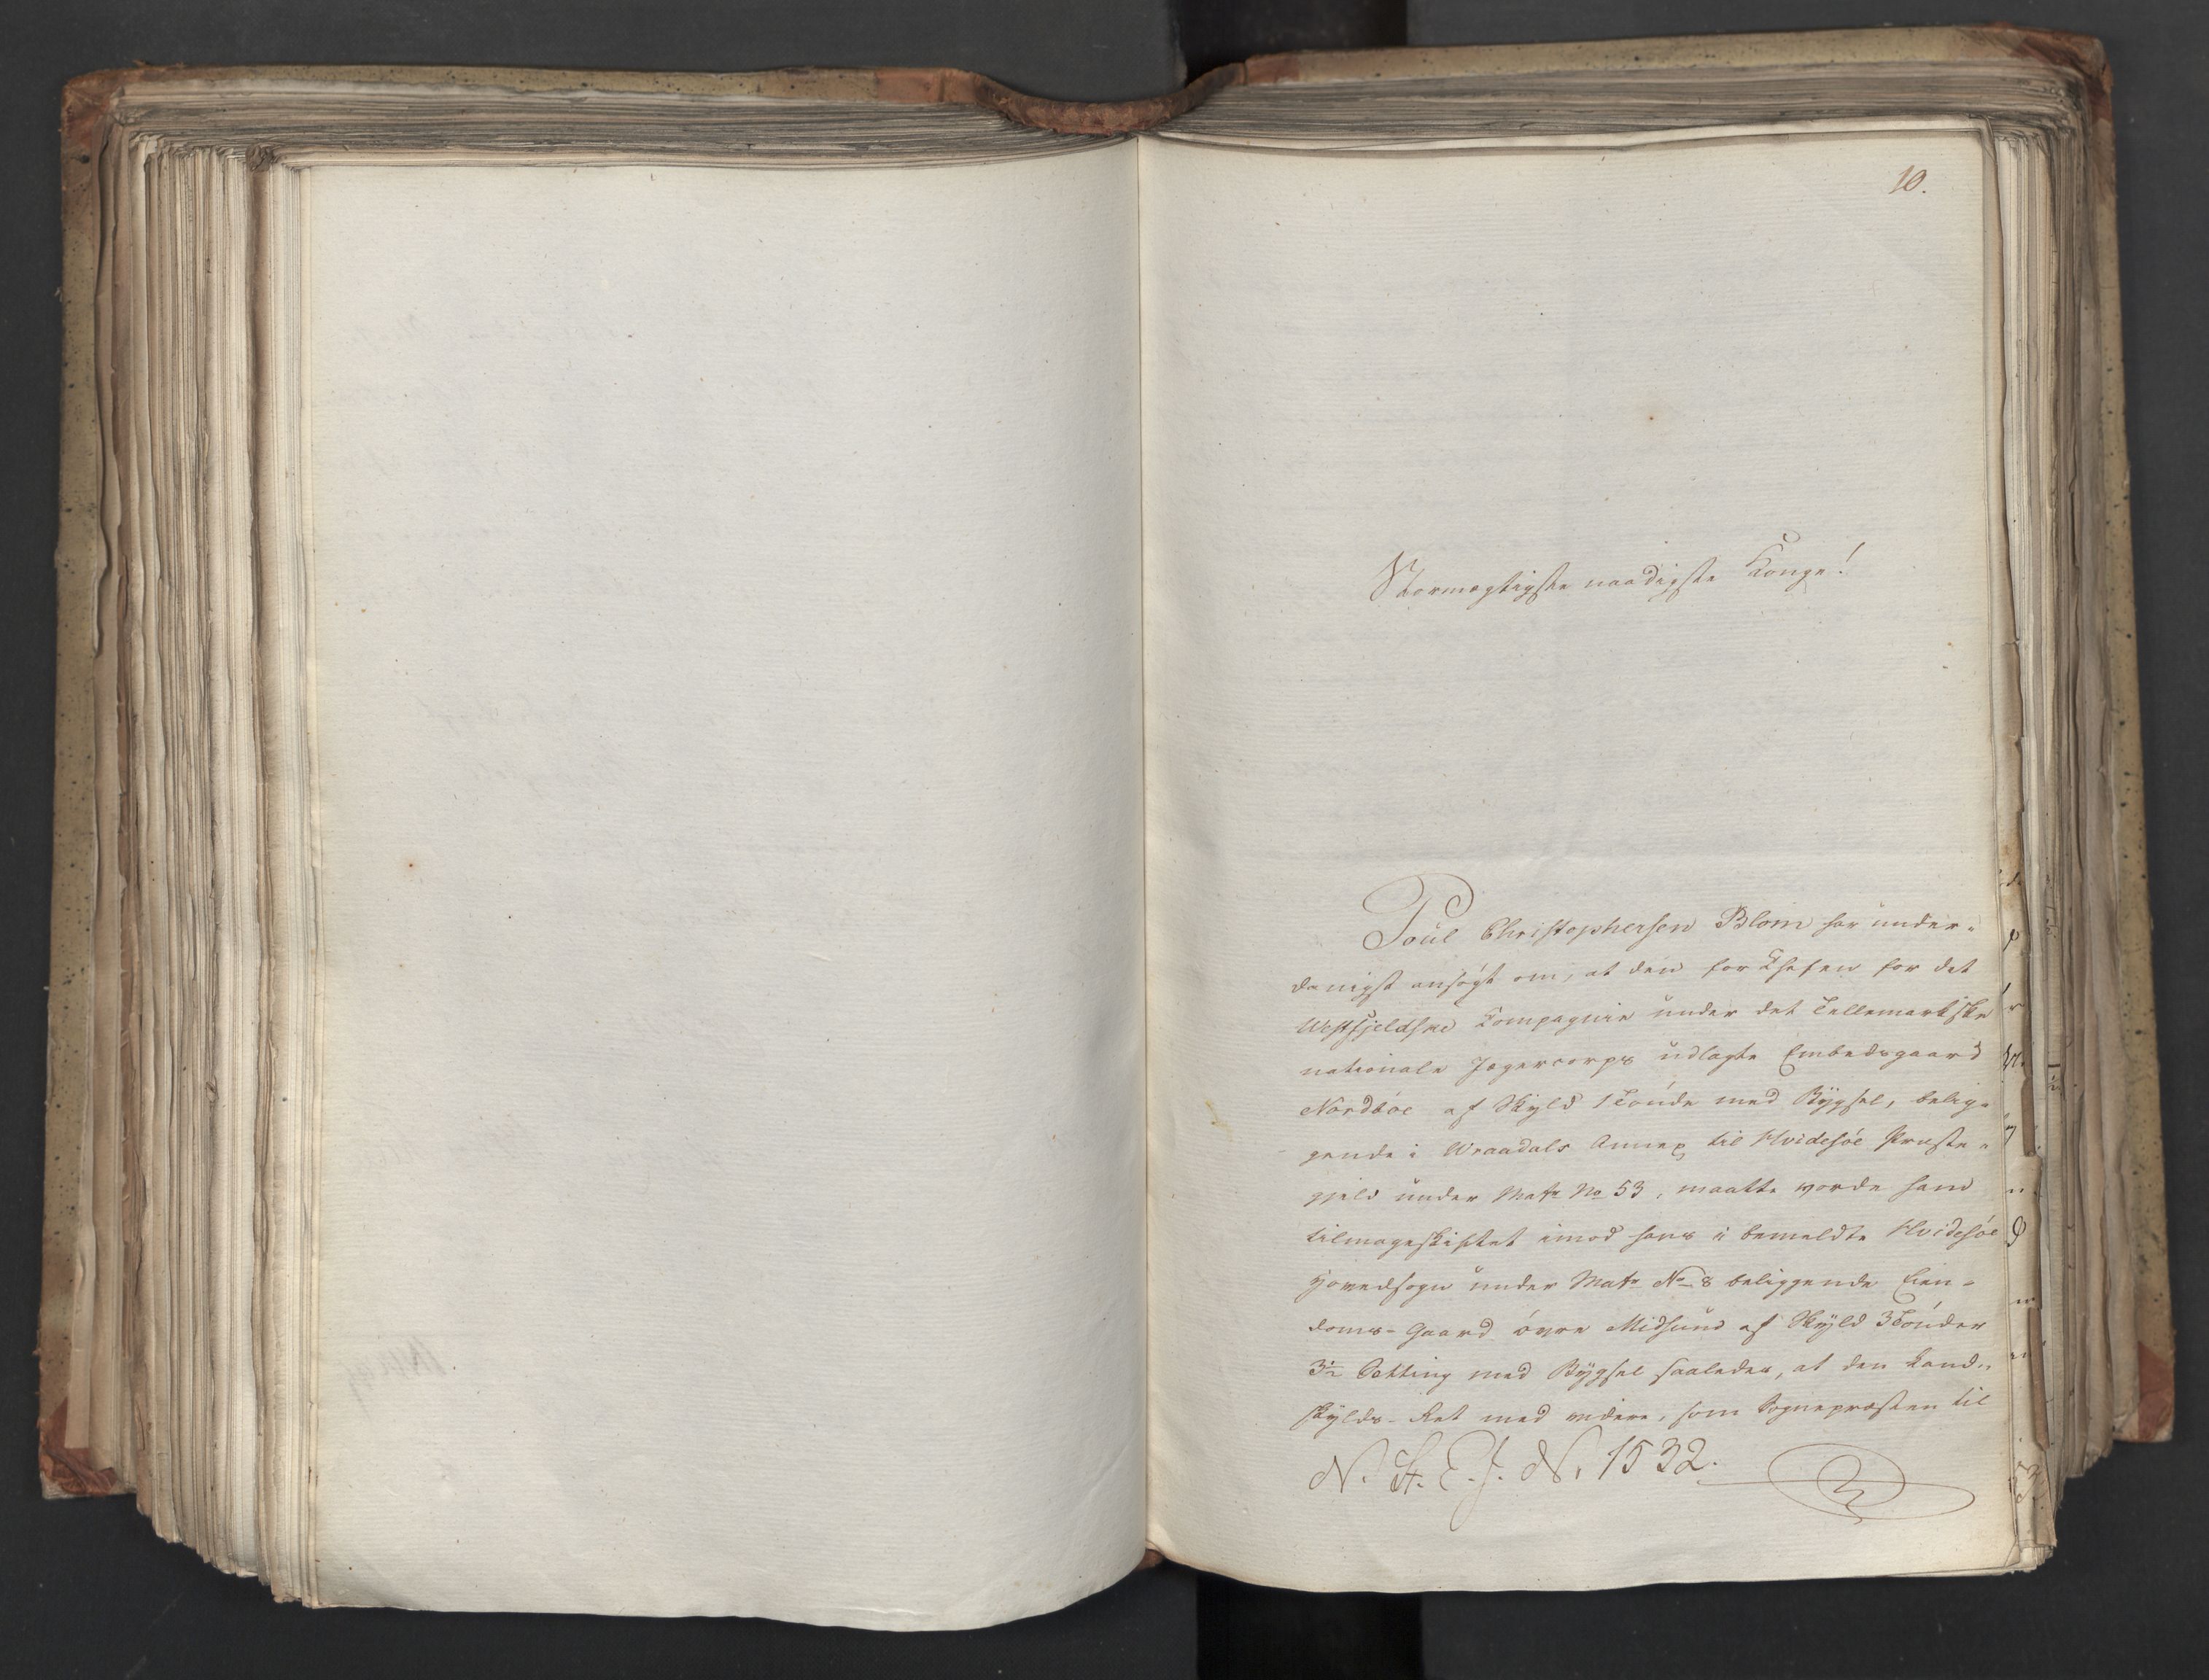 10.
Stormægtigste naadigste Konge!
Poül Christophersen Blom har ünder-
danigst ansøgt om, at den for Chefen for det
Westfjeldske Compagnie ünder det Tellemarkske
nationale Jægercorps üdlagte Embedsgaard
Nordbøe af Skÿld 1 Tønde med Bÿgsel, belig-
gende i Wraadals Annex til Hvidesøe Præste-
gjeld ünder Matr No 53, maatte vorde ham
tilmageskiftet imod hans i bemeldte Hvidesøe
Hovedsogn ünder Matr No 8 beliggende Eien-
doms-Gaard øvre Midsund af Skÿld 3 Tønder
3½ Sætting med Bÿgsel saaledes, at den Land-
skÿlds-Ret med videre, som Sognepræsten til
N. St. E. J. N. 1532.